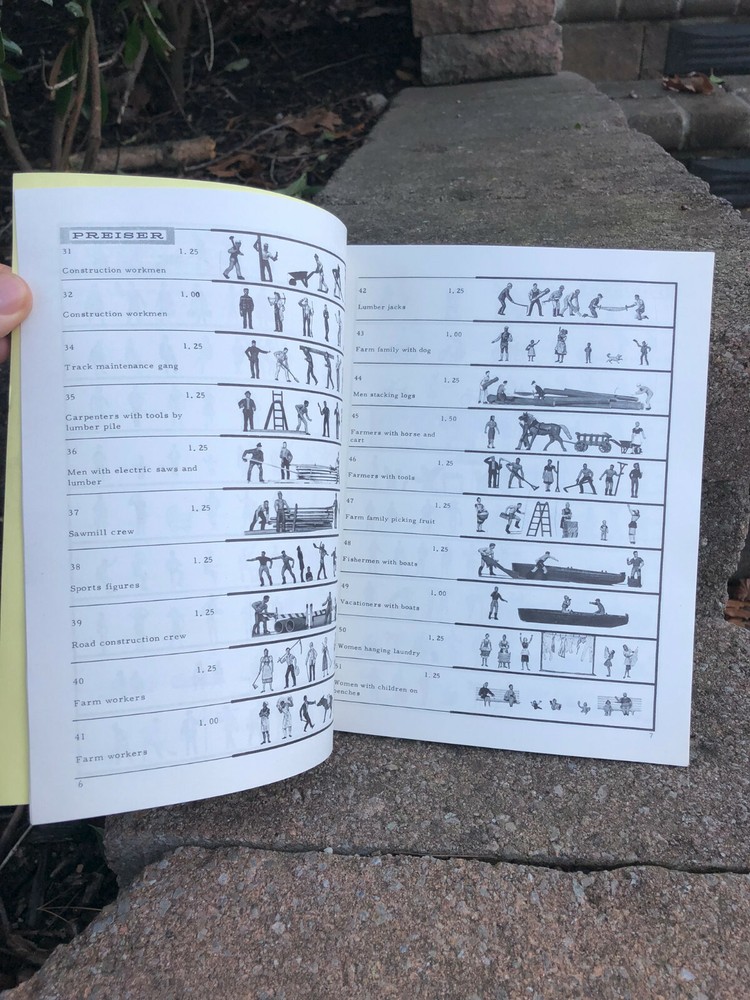 PREISER
31 1.25
Construction workmen
32 1.00
Construction workmen
34 1.25
Track maintenance gang
35 1.25
Carpenters with tools by
lumber pile
36 1.25
Men with electric saws and
lumber
37 1.25
Sawmill crew
38 1.25
Sports figures
39 1.25
Road construction crew
40 1.25
Farm workers
41 1.00
Farm workers
6
42 1.25
Lumber jacks
43 1.00
Farm family with dog
44 1.25
Men stacking logs
45 1.50
Farmers with horse and
cart
46 1.25
Farmers with tools
47 1.25
Farm family picking fruit
48 1.25
Fishermen with boats
49 1.00
Vacationers with boats
50 1.25
Women hanging laundry
51 1.25
Women with children on
benches
7